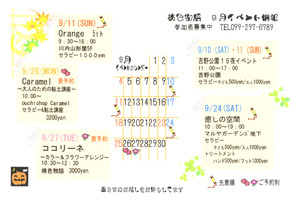 桃色物語 9月イベント情報
参加者募集中 TEL099-297-6789
9/11(SUN)
Orange 5th
9:30〜16:00
川内山形屋5F
セラピー1000yen
9/26(MON)
要予約
Caramel
〜大人のための粘土講座〜
10:00〜
ouchishop Caramel
セラピー&粘土講座
3200yen
9/27(TUE)
要予約
ココリーネ
〜カラー&フラワーアレンジ〜
10:30〜12:30
桃色物語 3000yen
9月
イベントカレンダー
1 2 3
4 5 6 7 8 9 10
11 12 13 14 15 16 17
18 19 20 21 22 23 24
25 26 27 28 29 30
9/10(SUN)・11(SUN)
吉野公園15夜イベント
11:00〜19:00
吉野公園
セラピー子ども500yen/大人1000yen
9/24(SAT)
癒しの空間
10:00〜17:00
マルヤガーデンズ地下
セラピー
子ども500yen/大人1000yen
トリートメント
ハンド500yen/フット1000yen
先着順
ご予約制
皆さまのお越しをお待ちしてます